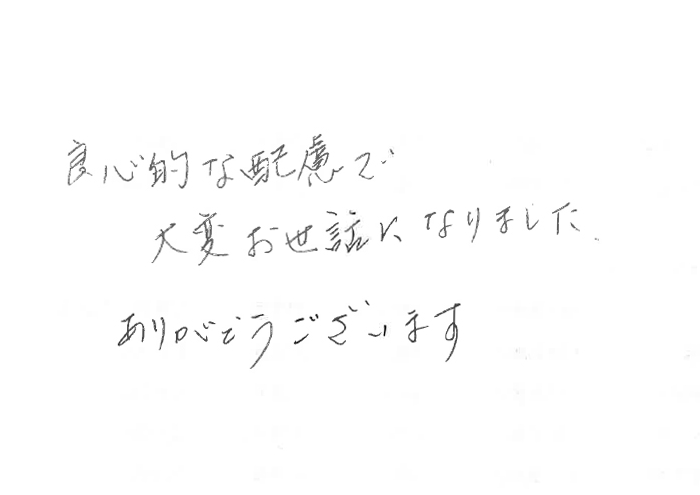 良心的な配慮で
大変お世話になりました.
ありがどうございます